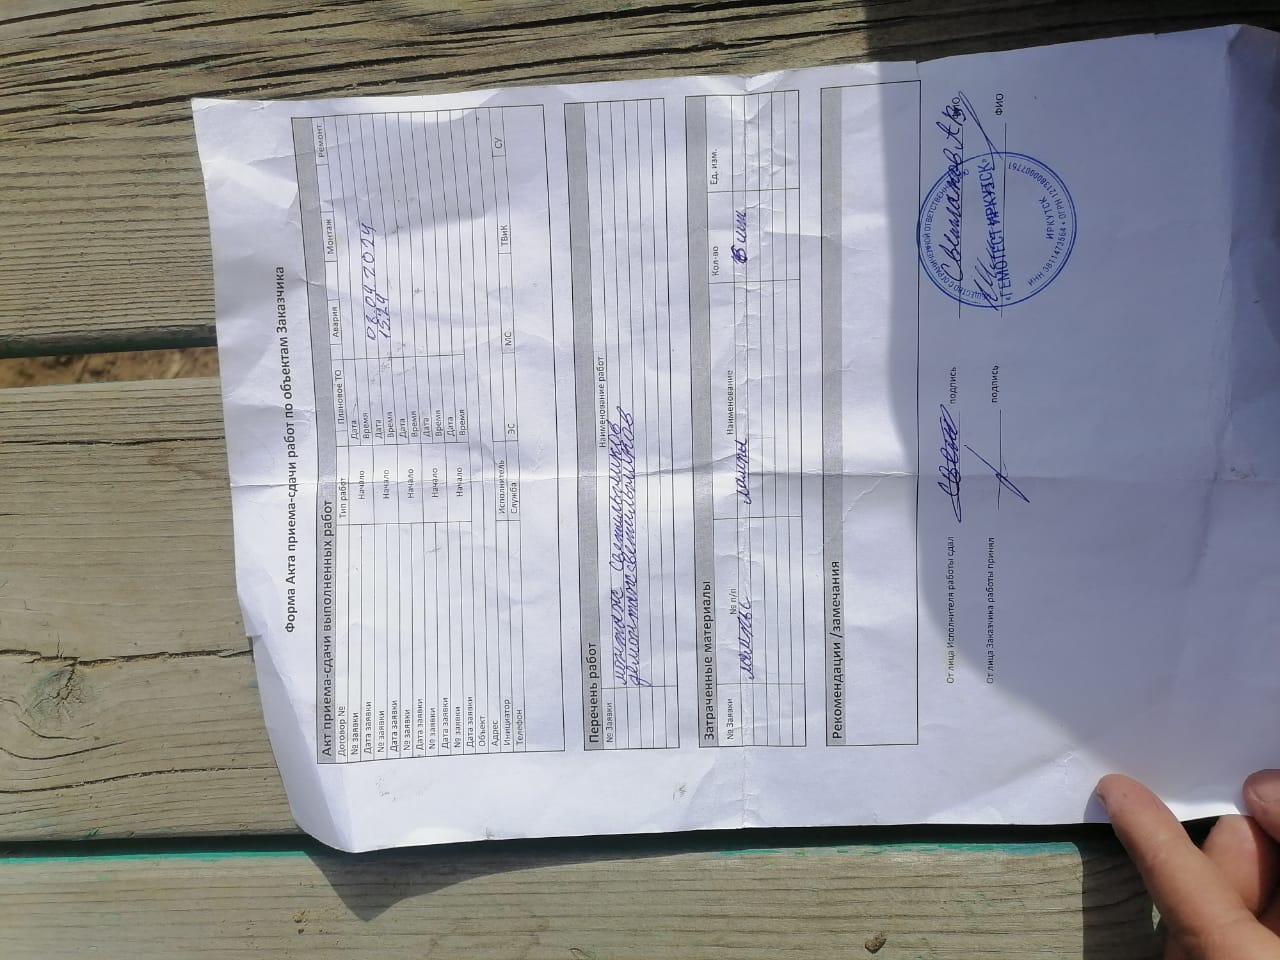 Форма Акта приема-сдачи работ по объектам Заказчика
Акт приема-сдачи выполненных работ
Договор № Тип работ Плановое ТО Авария Монтаж Ремонт
№ заявки Начало Дата
Дата заявки Время
№ заявки Начало Дата
Дата заявки Время
№ заявки Начало Дата
Дата заявки Время
№ заявки Начало Дата
Дата заявки Время
№ заявки Начало Дата
Дата заявки Время
08.04.2024
15:29
Объект
Адрес
Инициатор Исполнитель
Телефон Служба ЭС МС ТВиК СУ
Перечень работ
№ Заявки Наименование работ
монтаж светильников
демонтаж светильников
Затраченные материалы
№ Заявки № п/п Наименование Кол-во Ед. изм.
лампы 8 шт
Рекомендации /замечания
От лица Исполнителя работы сдал подпись ФИО
От лица Заказчика работы принял подпись ФИО
«ГЕМОТЕСТ ИРКУТСК»
ИРКУТСК
ИНН 3811473564 * ОГРН 1213800007761